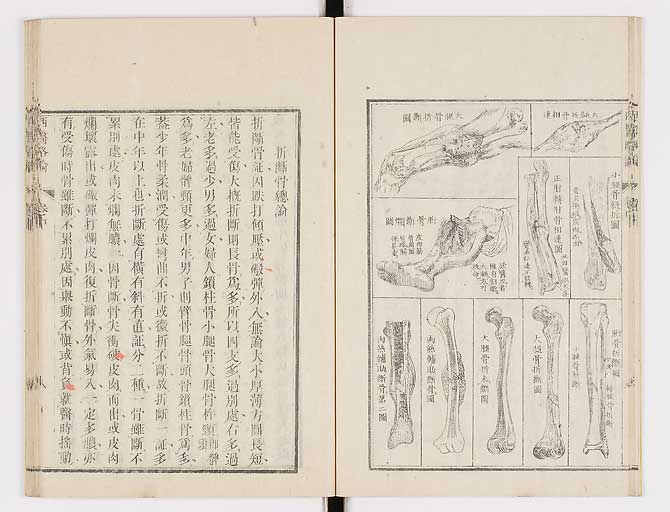 大腿折骨相連
大腿骨折斷圖
小腿骨斜折圖
正肘轉肘骨相連圖
大腿骨折斷圖
肉熱輔助斷骨圖
肉熱輔助斷骨第二圖
折斷骨總論
折斷骨証因跌打傾壓或礮彈外入無論大小厚薄方圓長短
皆能受傷大概折斷則長骨爲多所以四支多過別處右多過
左老多過少男多過女婦人鎖柱骨小腿骨大腿骨杵頭
爲多老婦髀頸更多中年男子則臂骨腿骨頭骨鎖柱骨爲多
蓋少年骨柔潤受傷或彎曲不折或微折不斷故折斷一証多
在中年以上也折斷處有橫有斜有直証分二種一骨雖斷不
累別處皮肉未爛無膿一因骨斷骨尖衝破皮肉而出或皮肉
爛壞露出或礮彈打爛皮肉復折斷骨外氣易入一定多膿亦
有受傷時骨雖斷不累別處因舉動不愼或背負就醫時搖動
西醫略論 卷中